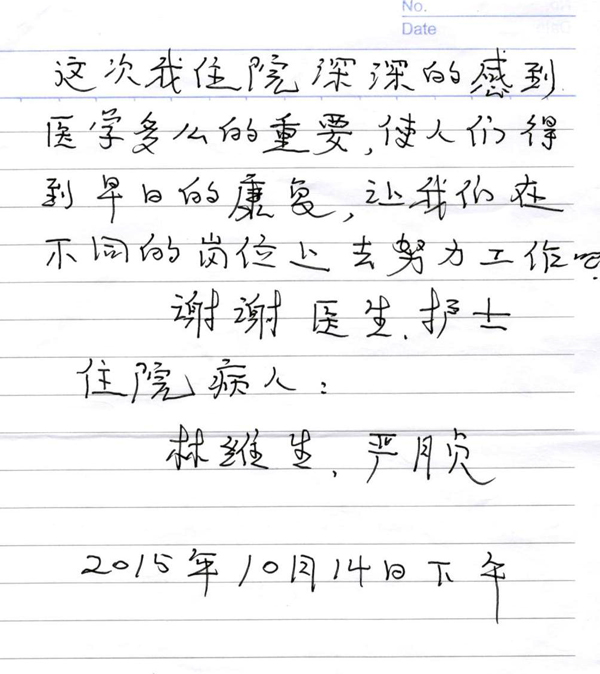 No.
Date
这次我住院深深的感到
医学多么的重要,使人们得
到早日的康复,让我们在
不同的岗位上去努力工作吧.
谢谢医生.护士
住院病人:
林维生.严月贞
2015年10月14日下午